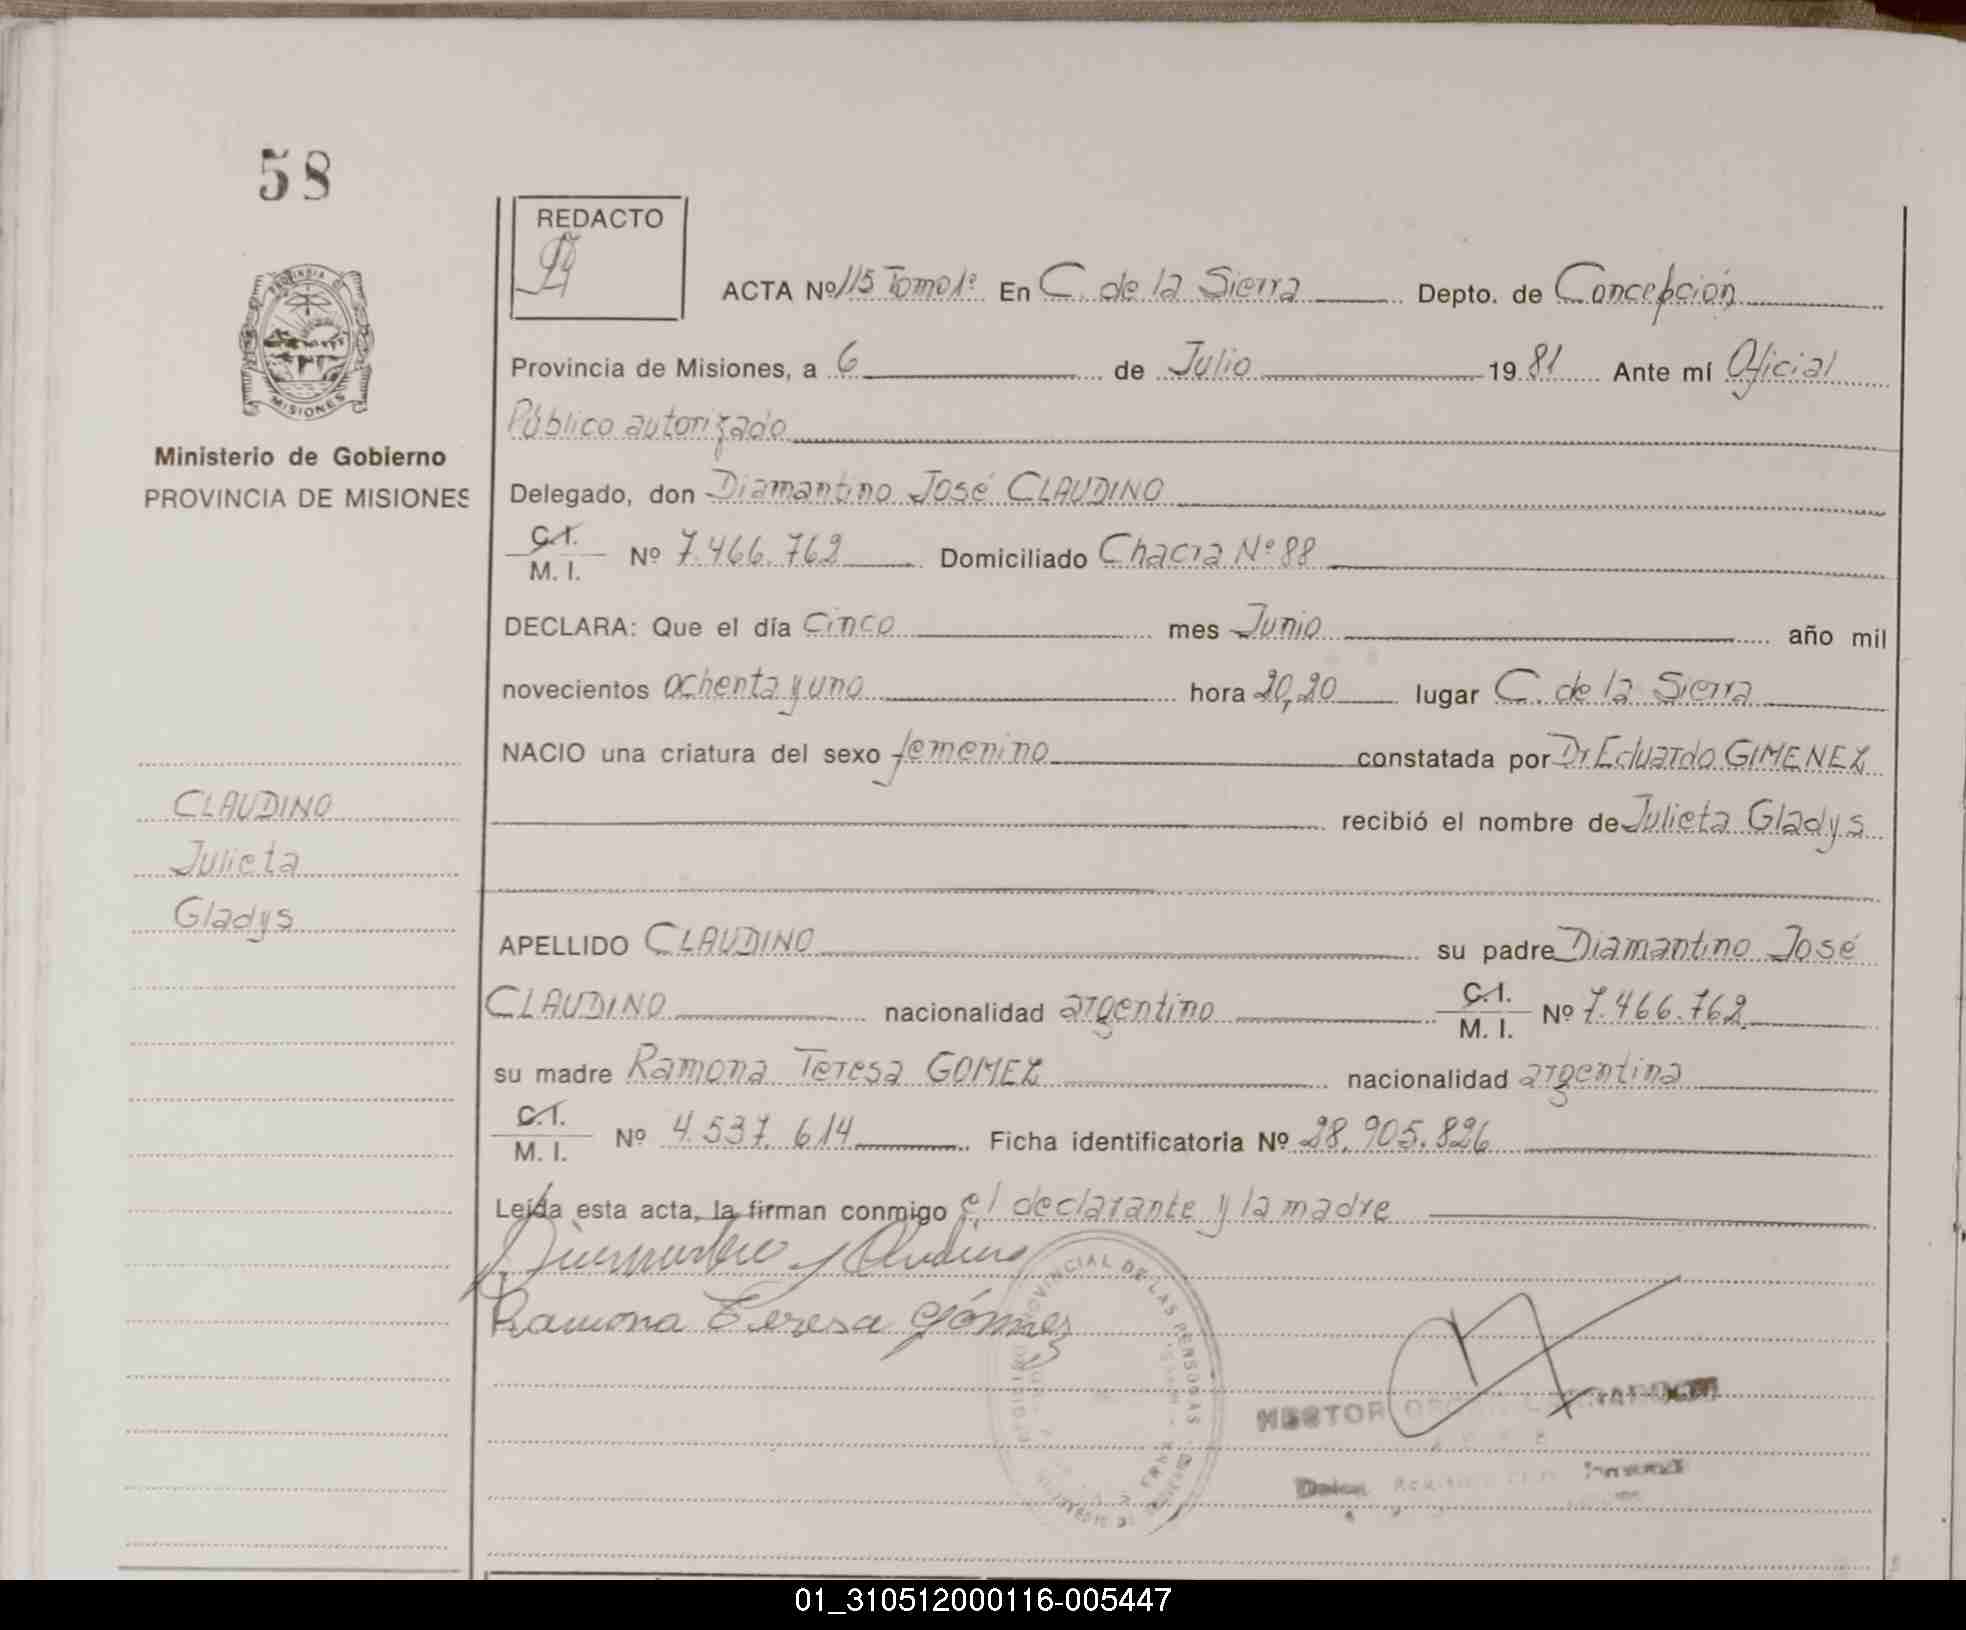 58
REDACTO
ACTA Nº 115 Tomo 1º En C. de la Sierra Depto. de Concepción
Provincia de Misiones, a 6 de Julio 1981 Ante mí Oficial
Público autorizado
Ministerio de Gobierno
PROVINCIA DE MISIONES
Delegado, don Diamantino José CLAUDINO
C.I. / M. I. Nº 7.466.762 Domiciliado Chacra Nº 88
DECLARA: Que el día cinco mes Junio año mil
novecientos ochenta y uno hora 20,20 lugar C. de la Sierra
NACIO una criatura del sexo femenino constatada por Dr Eduardo GIMENEZ
recibió el nombre de Julieta Gladys
CLAUDINO
Julieta
Gladys
APELLIDO CLAUDINO su padre Diamantino José
CLAUDINO nacionalidad argentino C.I. / M. I. Nº 7.466.762
su madre Ramona Teresa GOMEZ nacionalidad argentina
C.I. / M. I. Nº 4.537.614 Ficha identificatoria Nº 28.905.826
Leída esta acta, la firman conmigo el declarante y la madre
Diamantino J Claudino
Ramona Teresa Gómez
PROVINCIAL DE LAS PERSONAS
HECTOR
01_310512000116-005447